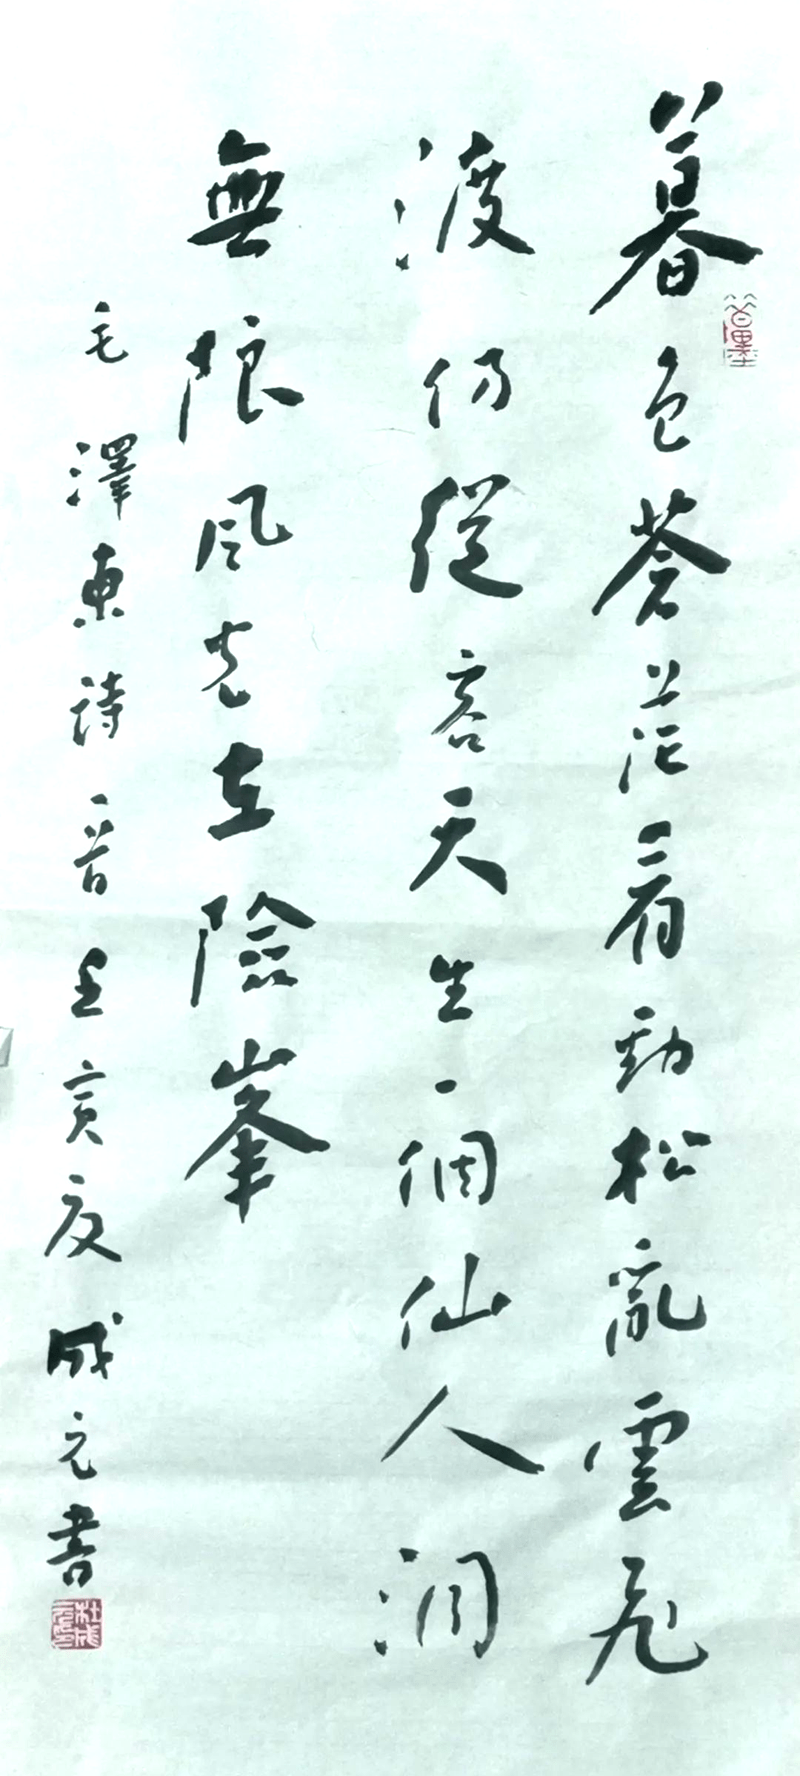 暮色蒼茫看勁松亂雲飛
渡仍從容天生一個仙人洞
無限風光在險峯
毛澤東詩一首壬寅夏成元書